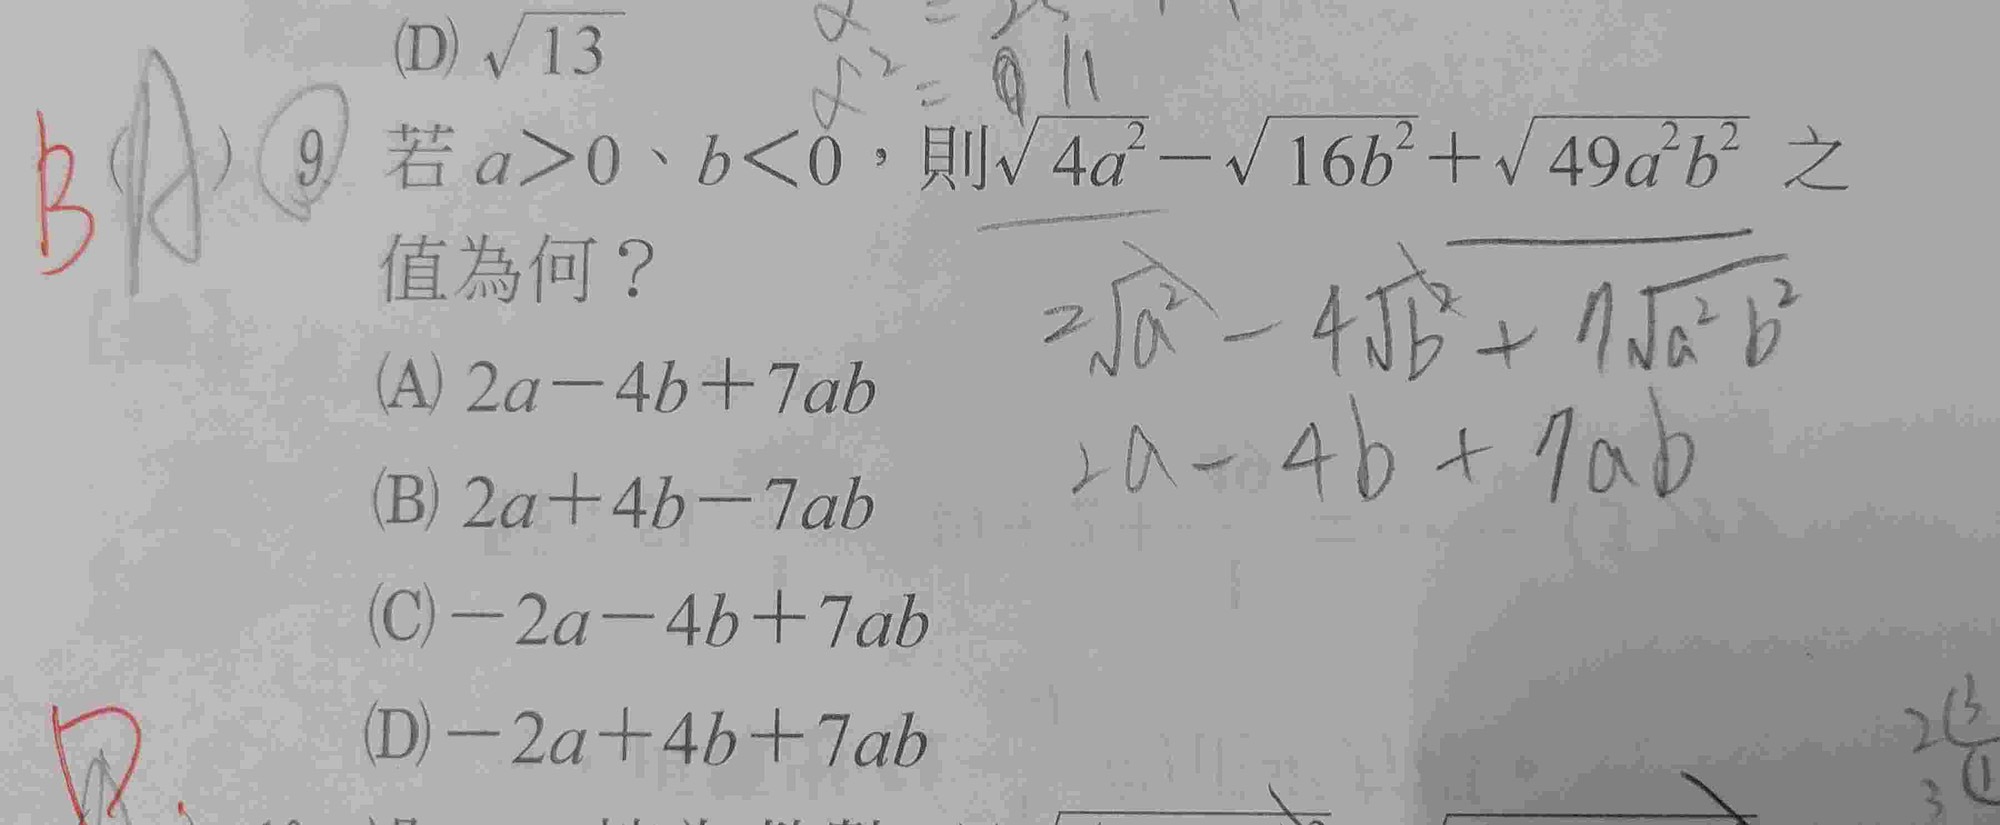 (D) √13
α² = 11
B (A) 9 若 a>0、b<0，則√4a² − √16b² + √49a²b² 之
值為何？
2√a² − 4√b² + 7√a²b²
(A) 2a−4b+7ab
2a − 4b + 7ab
(B) 2a+4b−7ab
(C) −2a−4b+7ab
(D) −2a+4b+7ab